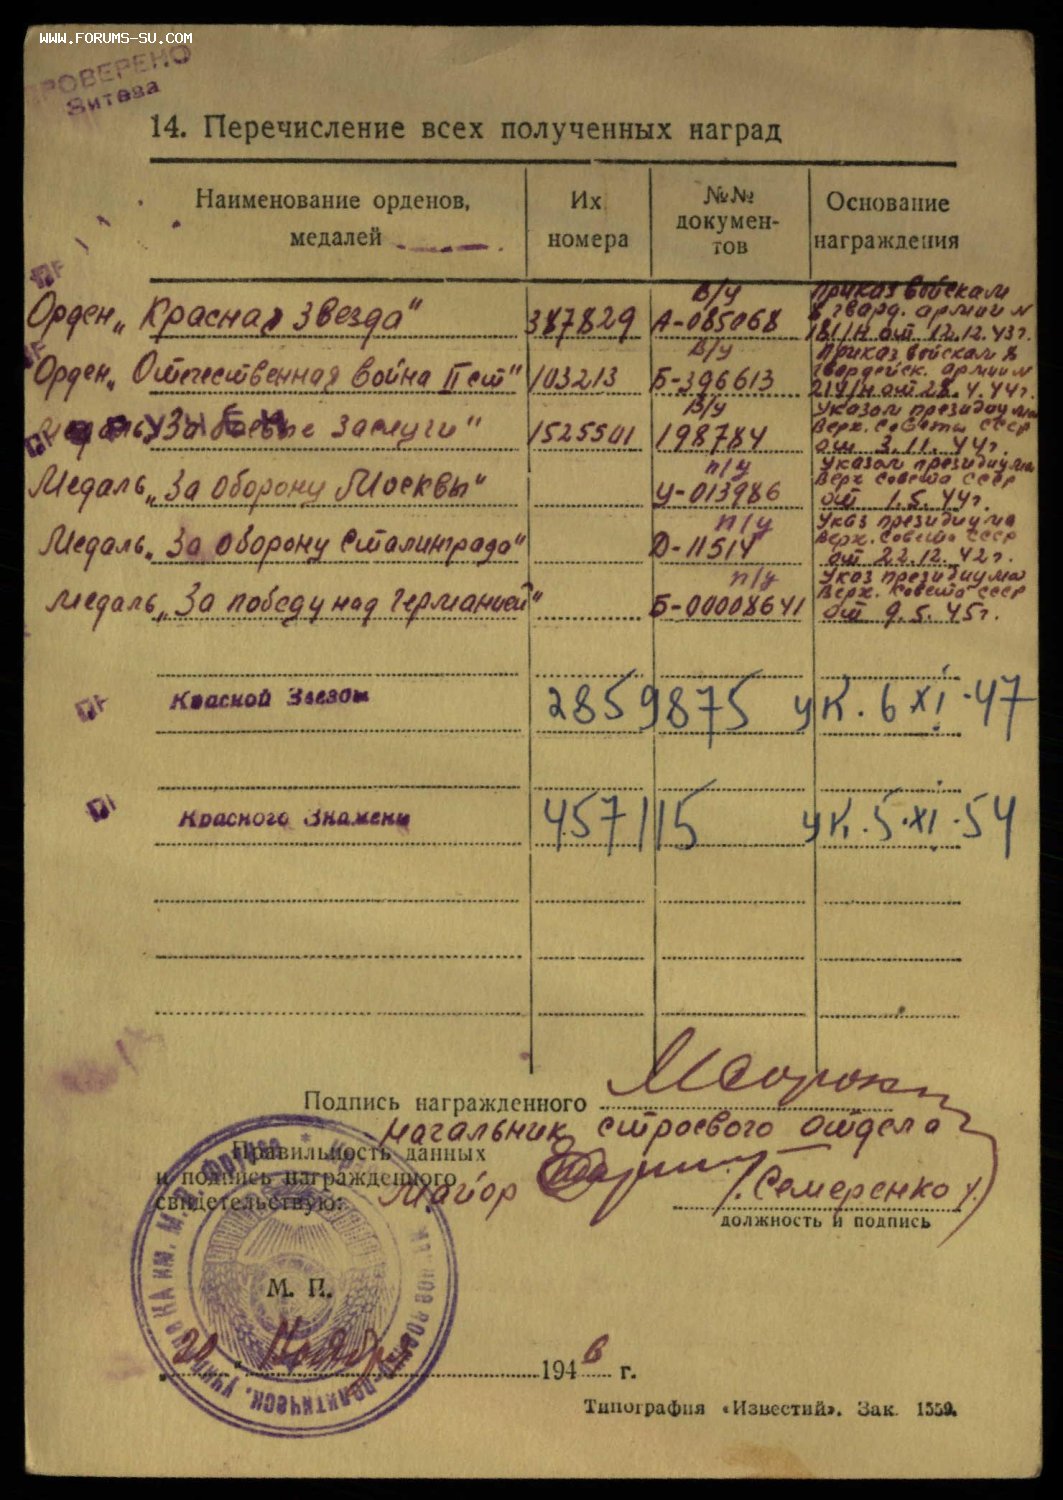 www.forums-su.com
ПРОВЕРЕНО
14. Перечисление всех полученных наград
Наименование орденов, медалей
Их номера
№№ документов
Основание награждения
Орден „Красная Звезда" 387829 в/у А-085068 Приказ войскам 8 гвард. армии N 181/н от 12.12.43г.
Орден „Отечественная война II ст" 103213 в/у Б-396613 Приказ войскам 8 гвардейск. армии N 214/н от 28.4.44г.
Медаль „За боевые заслуги" 1525501 в/у 198784 Указом президиума Верх. Совета СССР от 3.11.44г.
Медаль „За оборону Москвы" п/у У-013986 Указом президиума Верх Совета СССР от 1.5.44г.
Медаль „За оборону Сталинграда" п/у Д-11514 Указ президиума Верх. Совета СССР от 22.12.42г.
Медаль „За победу над Германией" п/у Б-00008641 Указ президиума Верх. Совета СССР от 9.5.45г.
Красной Звезды 2859875 ук. 6 XI-47
Красного Знамени 457115 ук. 5.XI.54
Подпись награжденного
Начальник строевого отдела
Правильность данных
и подпись награжденного
свидетельствую:
Майор /Семеренко/
должность и подпись
М. П.
20 Ноября 1946 г.
Типография «Известий». Зак. 1559.